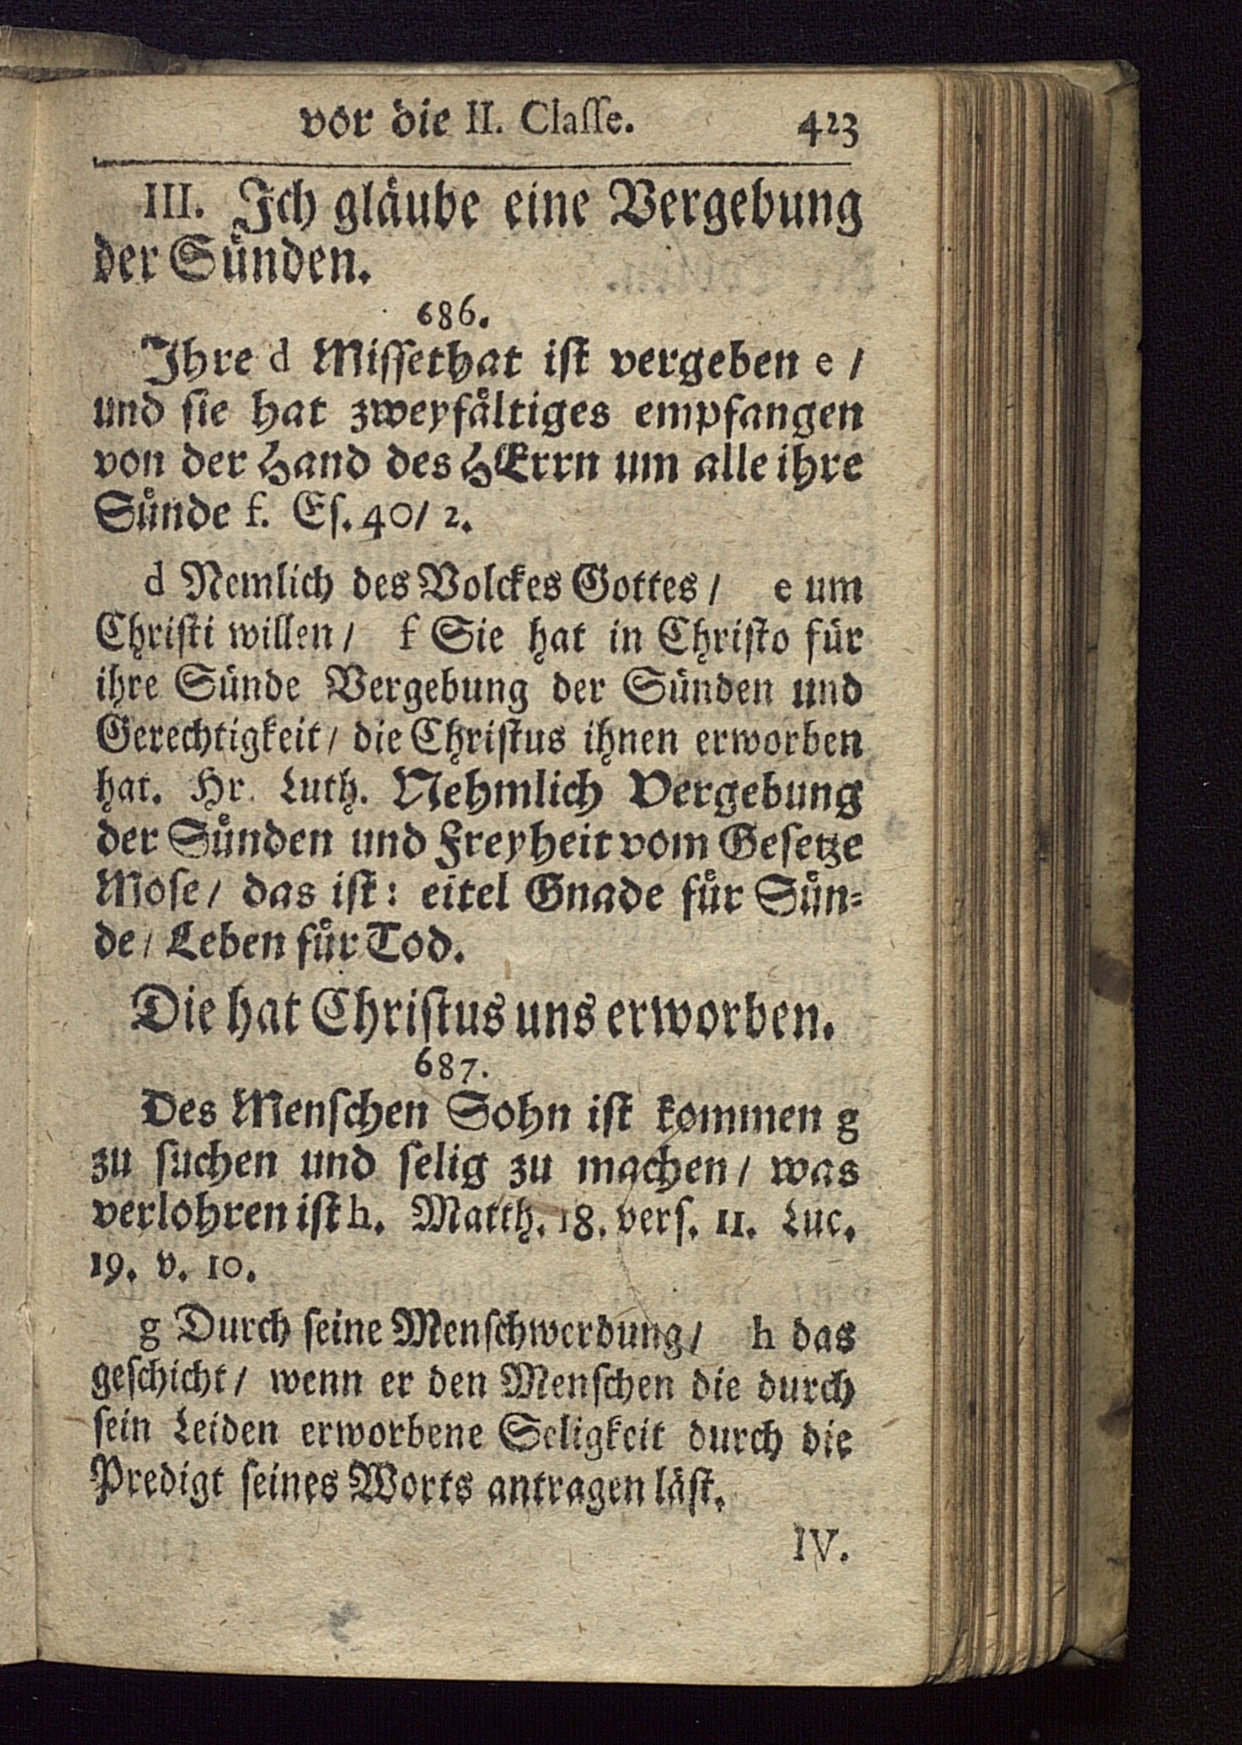 vor die II. Claſſe. 423
III. Ich gläube eine Vergebung
der Sünden.
686.
Ihre d Miſſethat iſt vergeben e /
und ſie hat zweyfältiges empfangen
von der Hand des HErrn um alle ihre
Sünde f. Eſ. 40/ 2.
d Nemlich des Volckes Gottes / e um
Chriſti willen / f Sie hat in Chriſto für
ihre Sünde Vergebung der Sünden und
Gerechtigkeit / die Chriſtus ihnen erworben
hat. Hr. Luth. Nehmlich Vergebung
der Sünden und Freyheit vom Geſetze
Moſe / das iſt: eitel Gnade für Sün-
de / Leben für Tod.
Die hat Chriſtus uns erworben.
687.
Des Menſchen Sohn iſt kommen g
zu ſuchen und ſelig zu machen / was
verlohren iſt h. Matth. 18. verſ. 11. Luc.
19. v. 10.
g Durch ſeine Menſchwerdung / h das
geſchicht / wenn er den Menſchen die durch
ſein Leiden erworbene Seligkeit durch die
Predigt ſeines Worts antragen läſt.
IV.